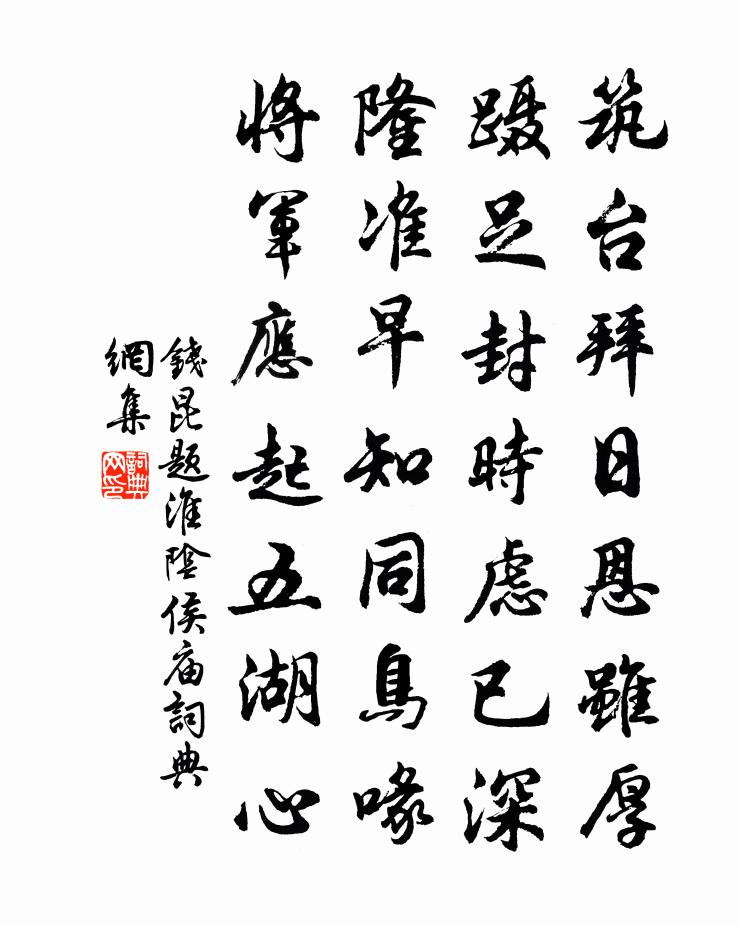 筑台拜日恩雖厚
蹑足封時慮已深
隆准早知同鳥喙
將軍應起五湖心
錢昆题淮陰侯庙詞典
網集
詞典網印